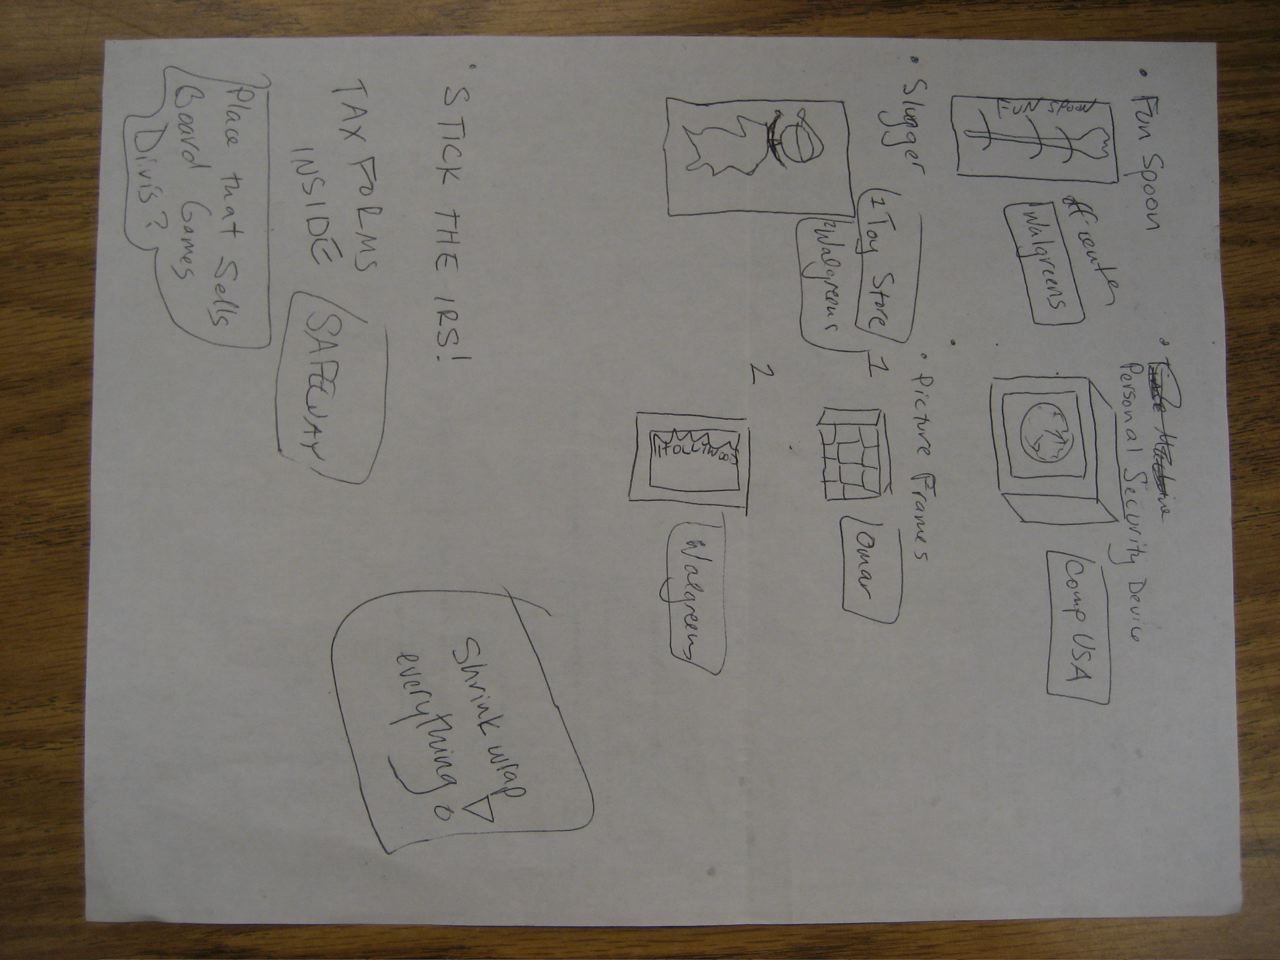 • Fun Spoon
FUN SPOON
Walgreens
• Time Machine
Personal Security Device
Comp USA
• Slugger
1 Toy Store
2 Walgreens
• Picture Frames
1
Omar
2
HOLLYWOOD
Walgreens
• STICK THE IRS!
TAX FORMS
INSIDE
SAFEWAY
Place that Sells
Board Games
Divis?
Shrink wrap
everything!